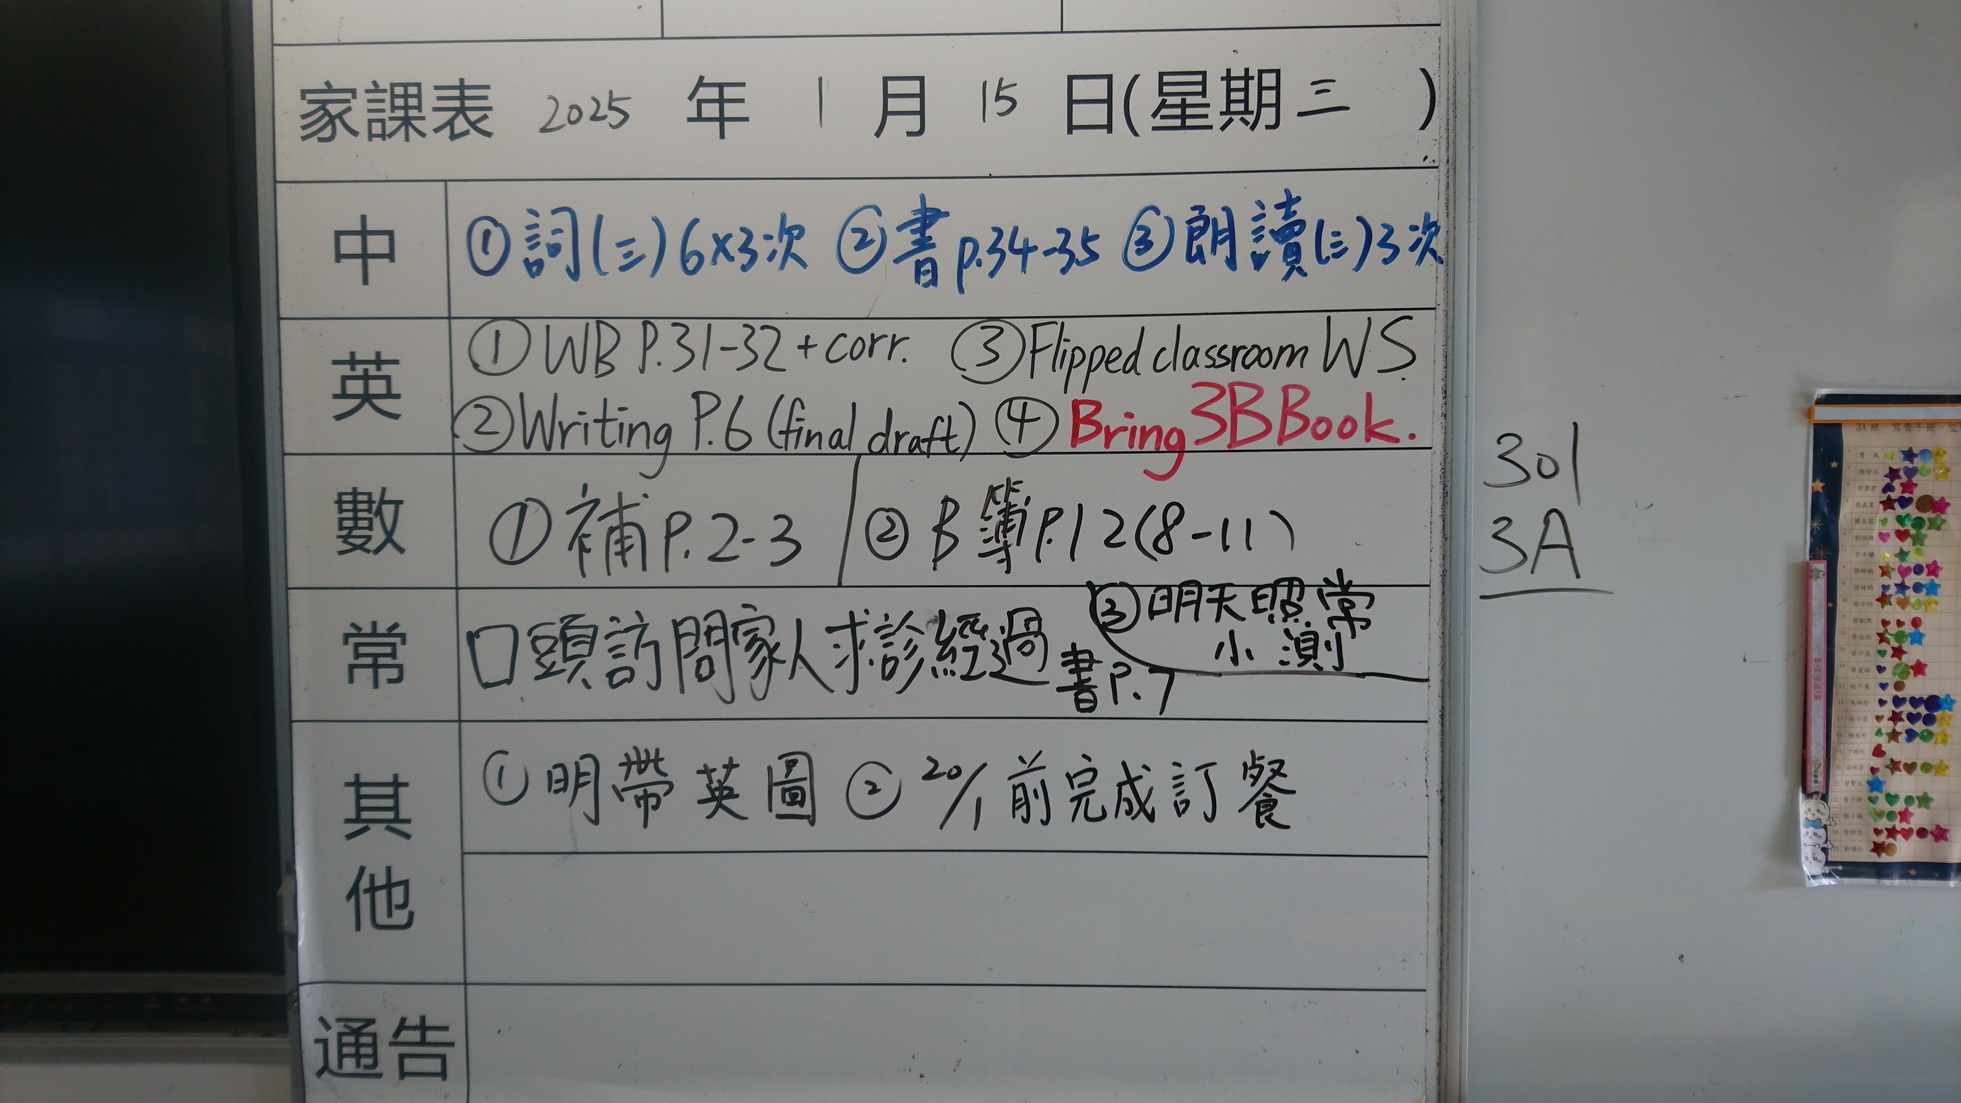 家課表 2025 年 1 月 15 日(星期三)
中 ①詞(三)6×3次 ②書p.34-35 ③朗讀(三)3次
英 ①WB P.31-32 + corr. ③Flipped classroom WS.
②Writing P.6 (final draft) ④Bring 3B Book.
數 ①補P.2-3 ②B簿P.12(8-11)
③明天照常
小測
常 口頭訪問家人求診經過 書P.7
其他 ①明帶英圖 ②20/1前完成訂餐
通告
301
3A